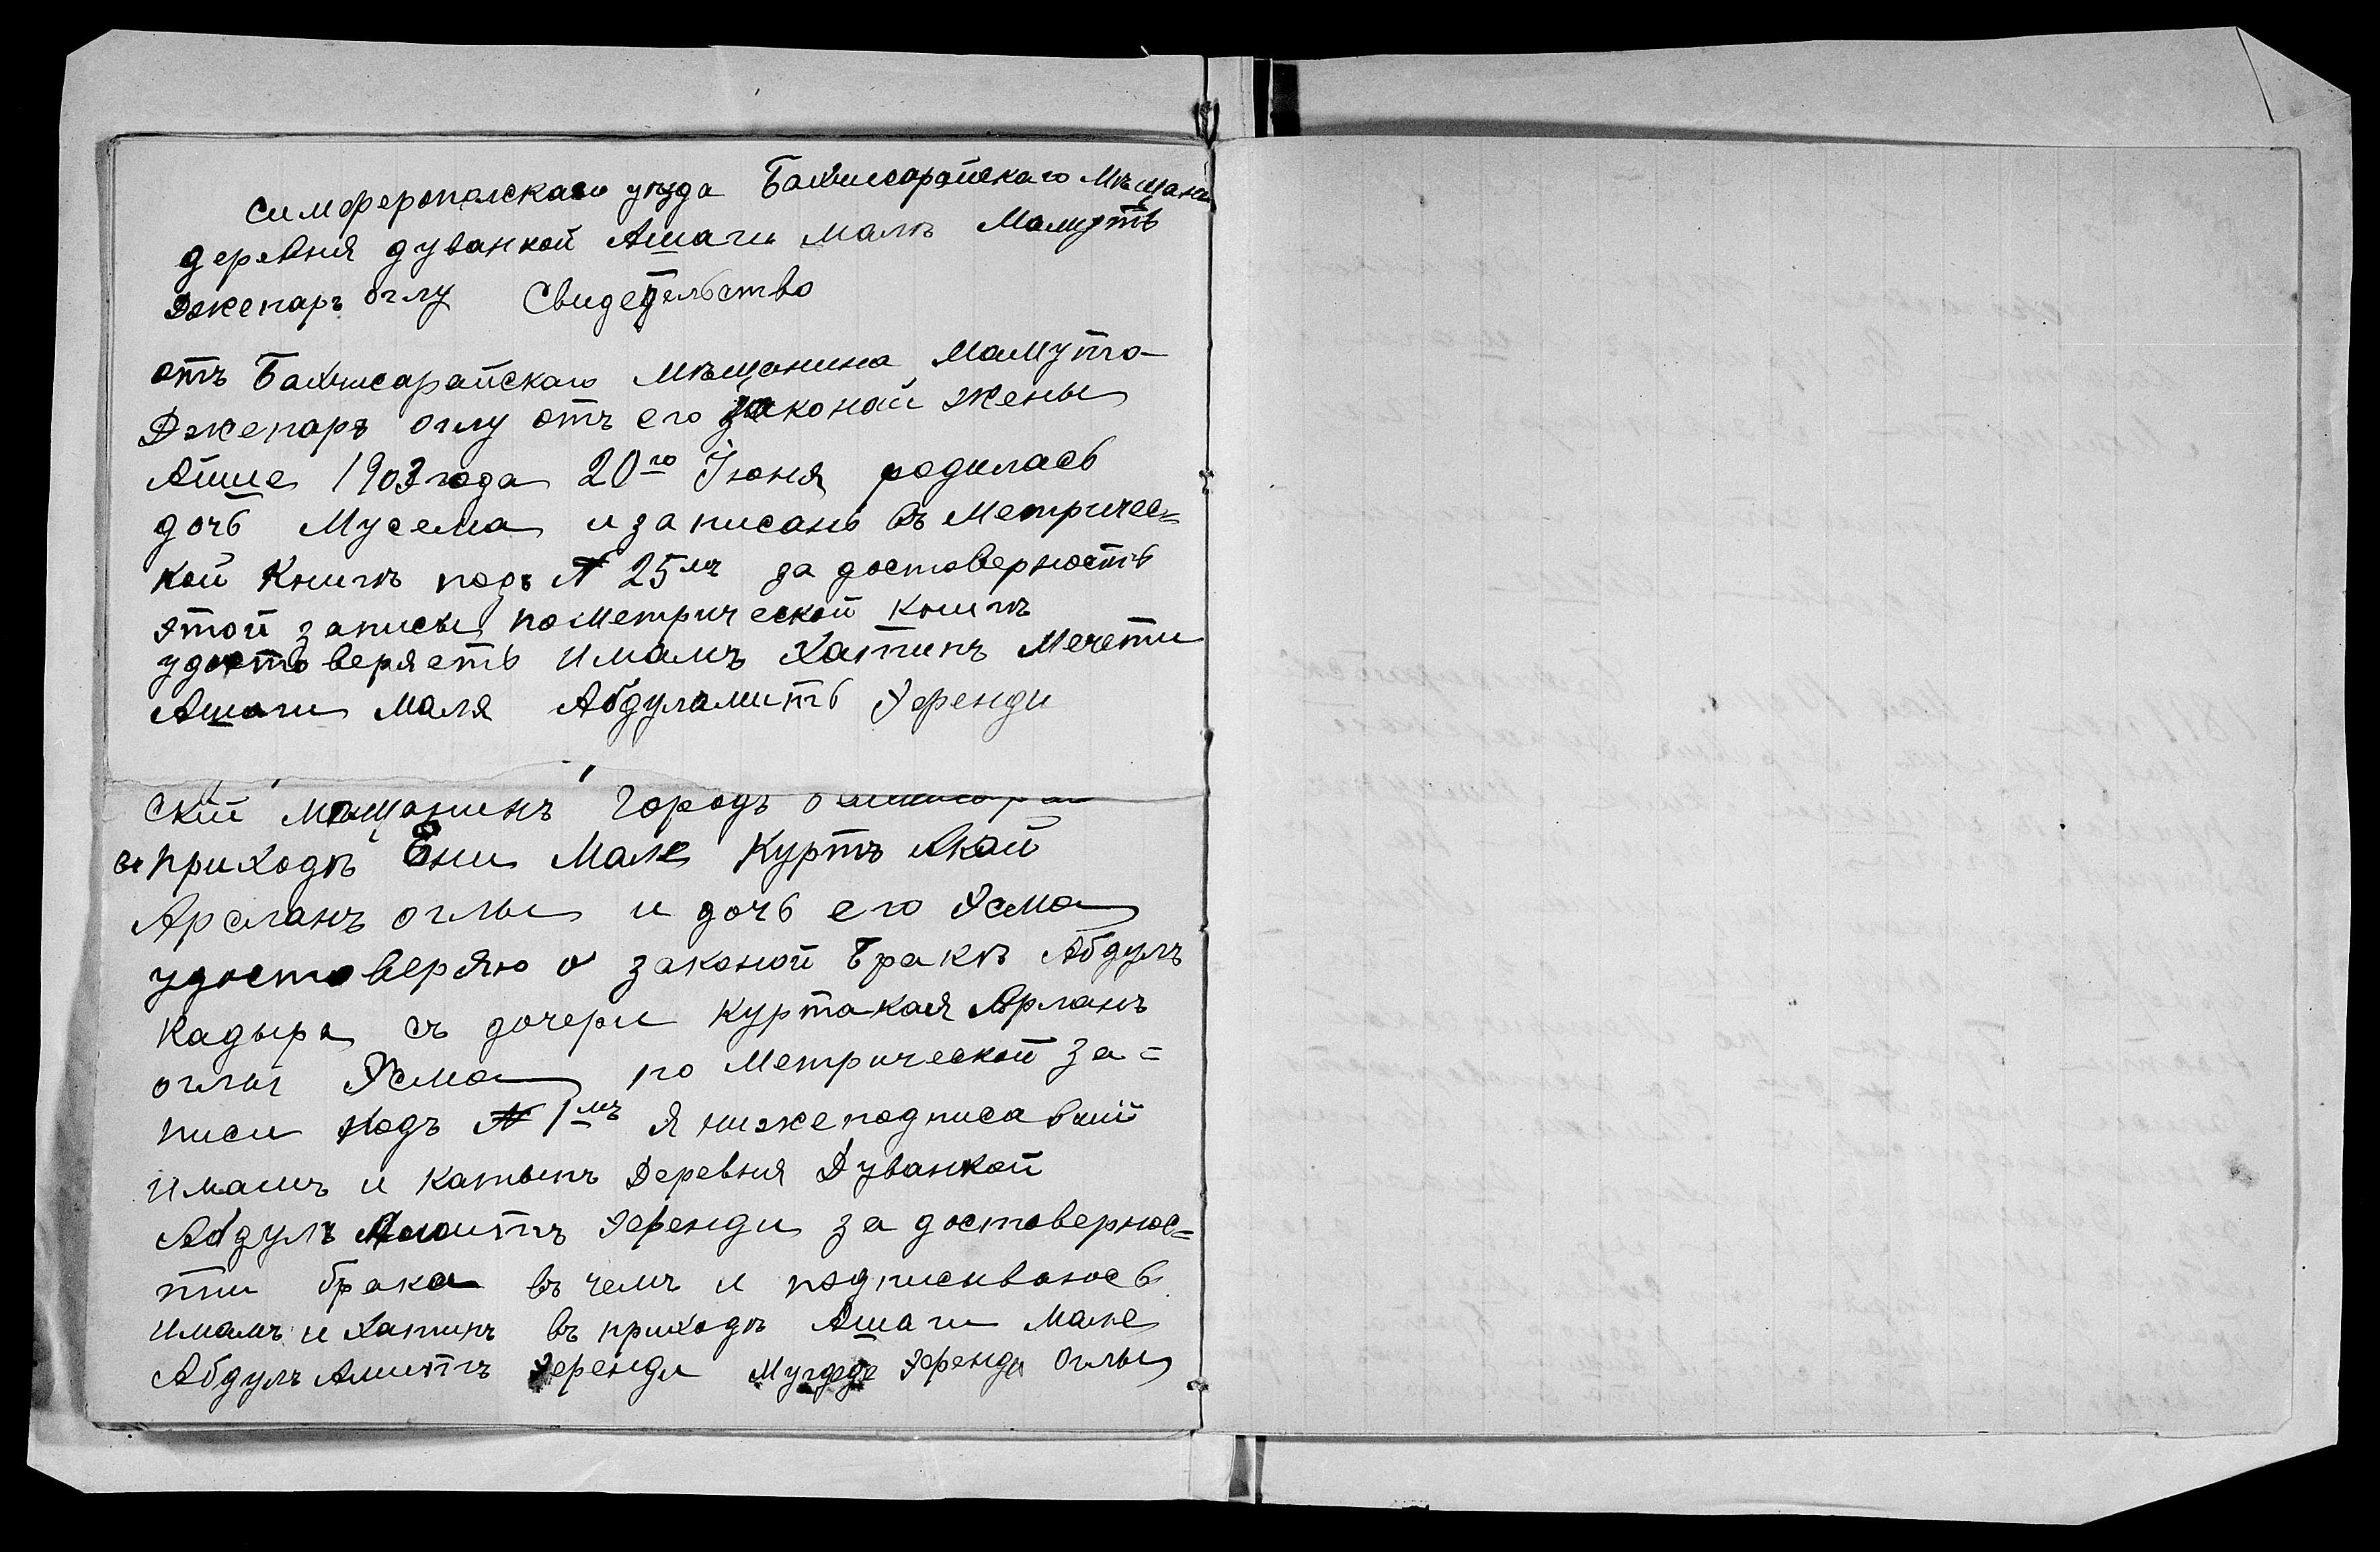 Симферополскаго уѣзда Бахчисарайскаго Мѣщани
деревня дуванкой Ашаги малѣ Мамутъ
Джепаръ оглу Свидетельство
отъ Бахчисарайскаго мѣщанина Мамутъ
Джепаръ оглу отъ его законай жены
Аише 1903 года 20го Іюня родилась
дочь Мусема и записанъ въ метричес=
кой Книгѣ подъ № 25мъ за достоверность
этой записы по метрической книгѣ
удостоверяетъ имамъ Хатипъ Мечети
Ашаги маля Абдуламитъ Эфенди
ский мѣщанинъ городъ
въ приходѣ Ени Мале Куртъ Акай
Арсланъ оглы и дочь его Эсма
удостоверяю о законой бракѣ Абдулъ
Кадыра съ дочери Куртакая Арланъ
оглы Эсма по метрической за=
писи подъ № 1мъ я нижеподписавший
имамъ и катыпъ Деревня Дуванкой
Абдулъ Амитъ Эфенди за достовернос=
ти брака въ чемъ и подписываюсь
имамъ и хатипъ въ приходѣ Ашаги мале
Абдулъ Амитъ Эфенди Эфенди Оглы